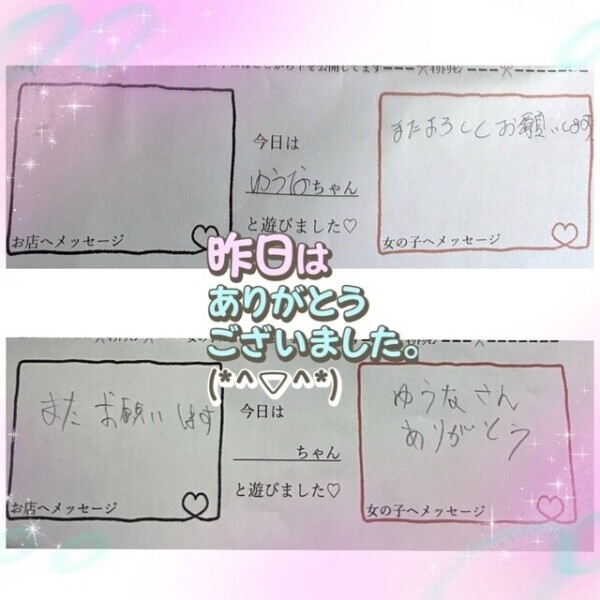 を公開してます
今日は
ゆうなちゃん
と遊びました♡
お店へメッセージ
またよろしくお願いします
女の子へメッセージ
昨日は
ありがとう
ございました。
(*^▽^*)
またお願いします
お店へメッセージ
今日は
ちゃん
と遊びました♡
ゆうなさん
ありがとう
女の子へメッセージ